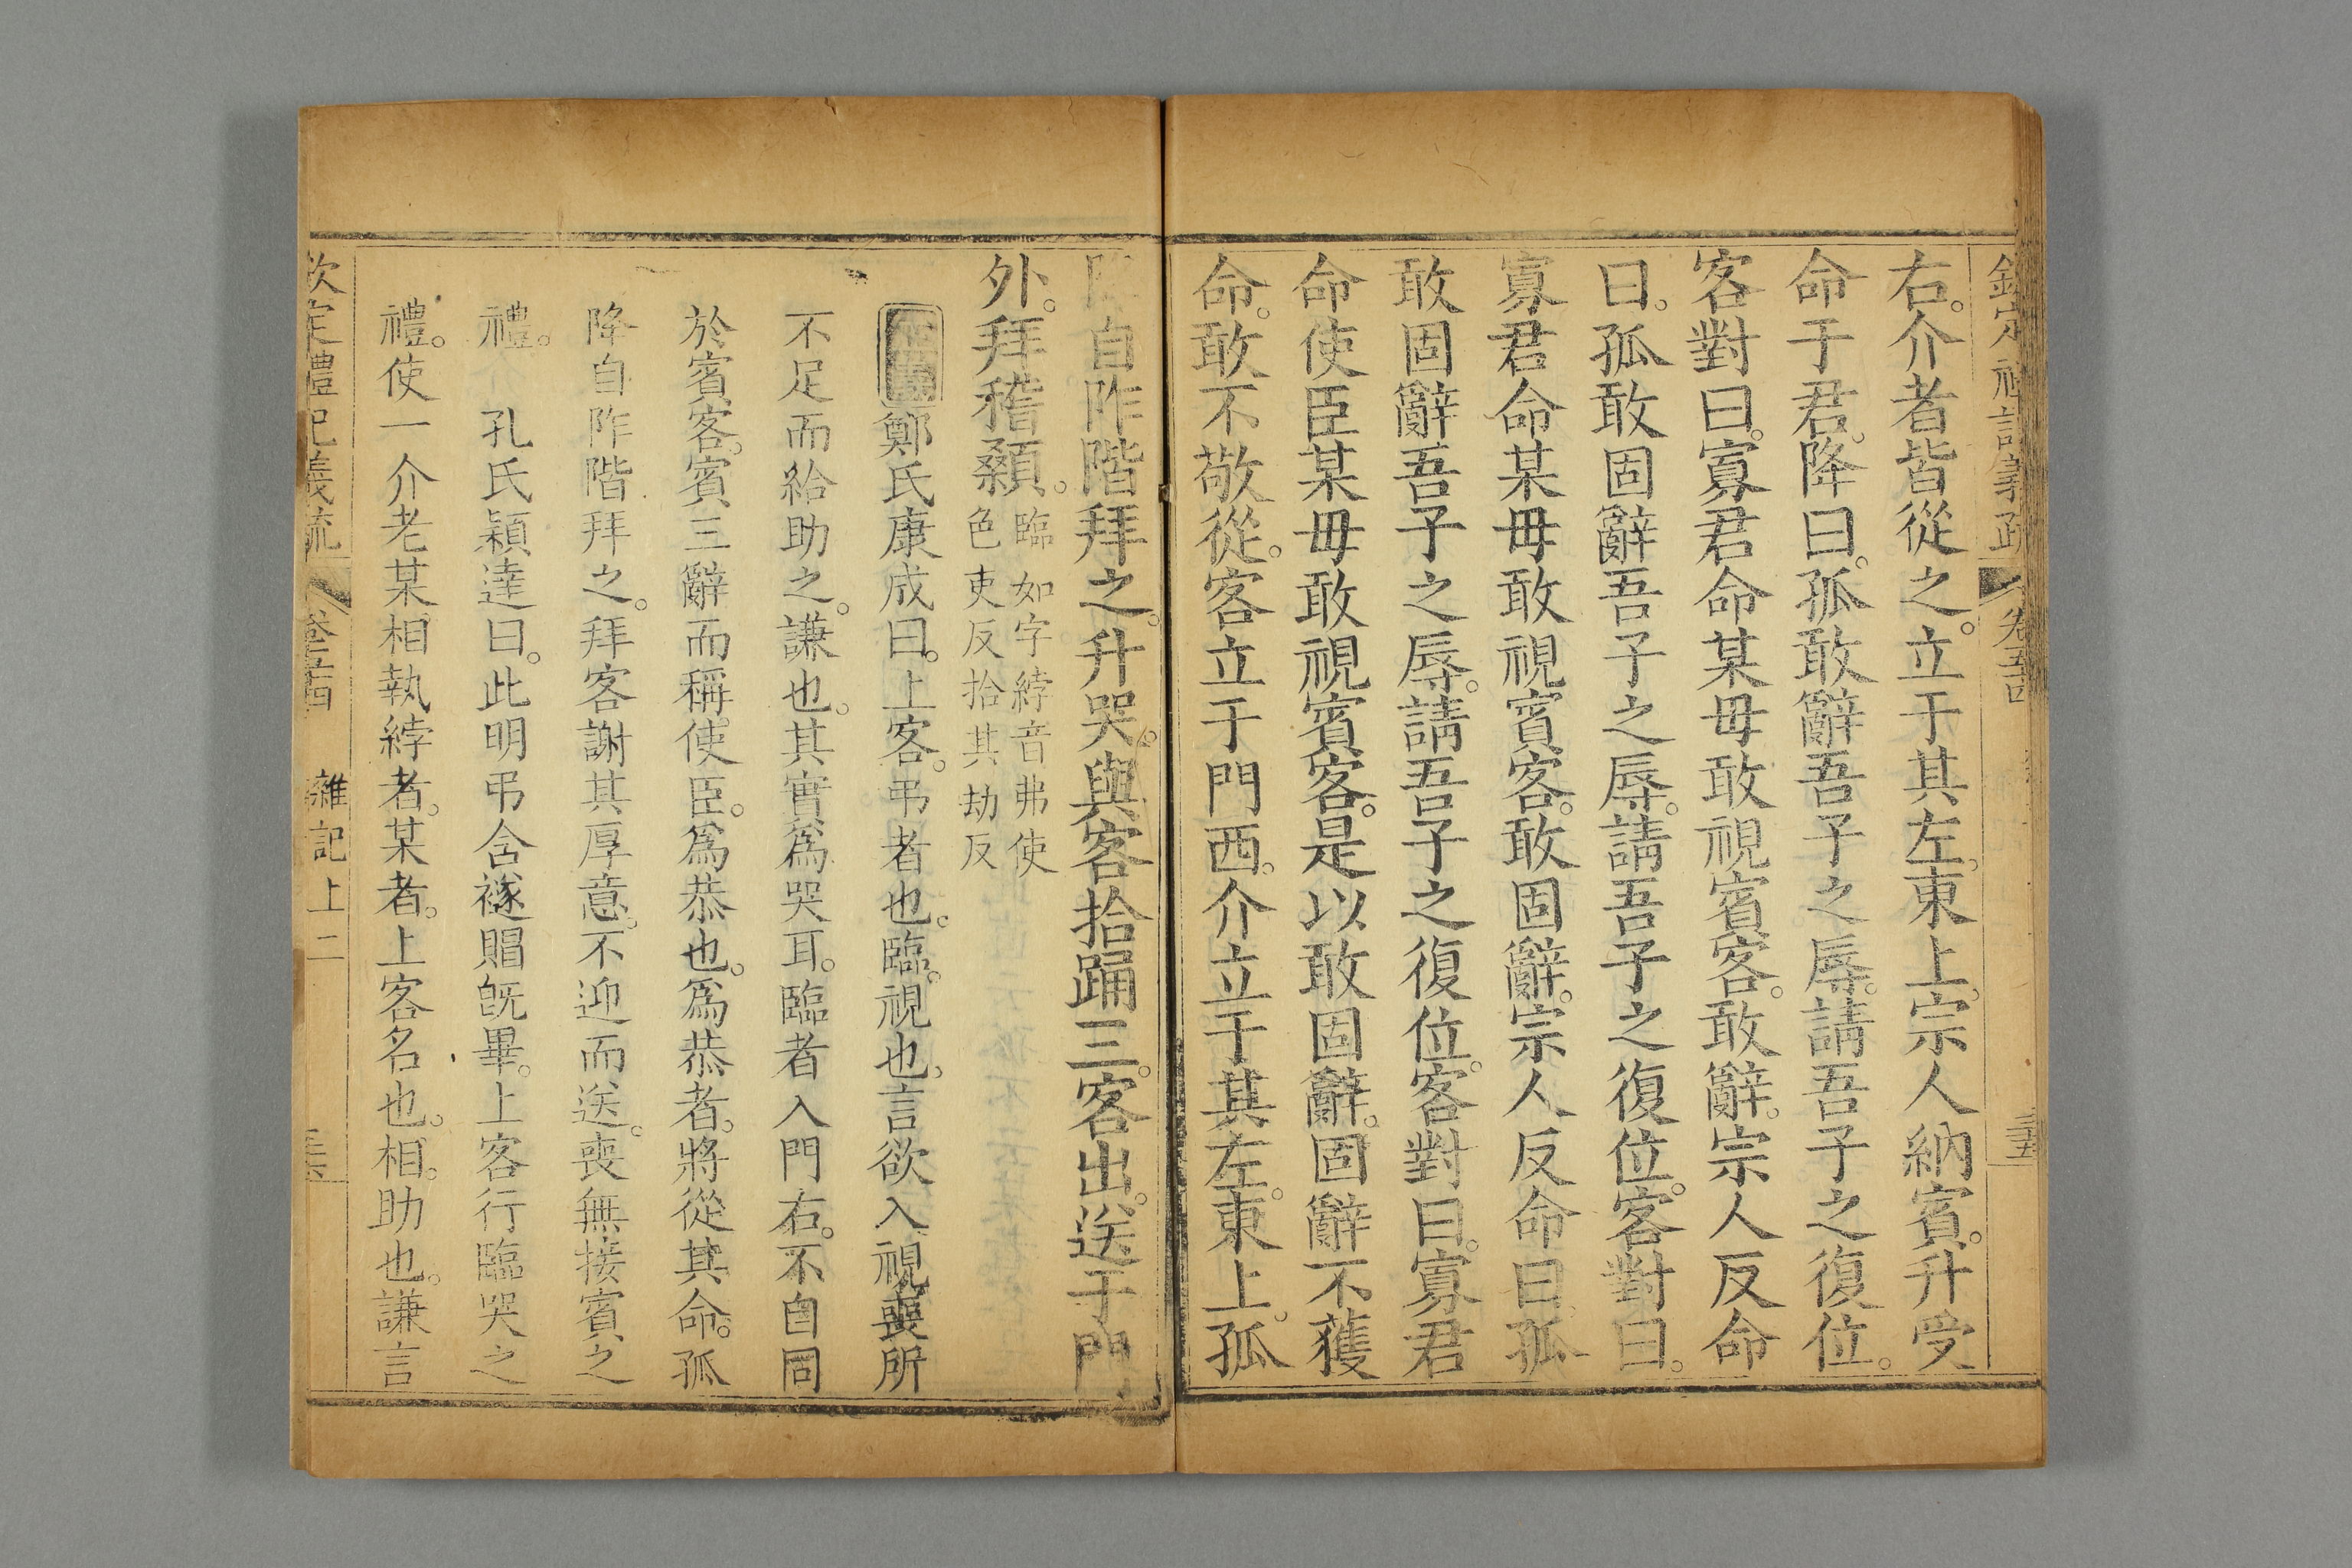 右。介者皆從之。立于其左。東上。宗人納賓。升受
命于君。降曰。孤敢辭吾子之辱。請吾子之復位。
客對曰。寡君命某毋敢視賓客。敢辭。宗人反命
曰。孤敢固辭吾子之辱。請吾子之復位。客對曰。
寡君命某毋敢視賓客。敢固辭。宗人反命曰孤
敢固辭吾子之辱。請吾子之復位。客對曰。寡君
命使臣某毋敢視賓客。是以敢固辭。固辭不獲
命。敢不敬從。客立于門西。介立于其左。東上。孤
自阼階拜之。升哭。與客拾踊三。客出。送于門
外。拜稽顙。
臨如字綍音弗使
色吏反拾其劫反
鄭氏康成曰。上客。弔者也。臨。視也。言欲入視喪所
不足而給助之。謙也。其實爲哭耳。臨者入門右。不自同
於賓客。賓三辭而稱使臣。爲恭也。爲恭者。將從其命。孤
降自阼階拜之。拜客謝其厚意。不迎而送。喪無接賓之
禮。 孔氏穎達曰。此明弔含襚賵旣畢。上客行臨哭之
禮。使一介老某。相執綍者。某者。上客名也。相。助也。謙言
欽定禮記義疏 卷 雜記上二